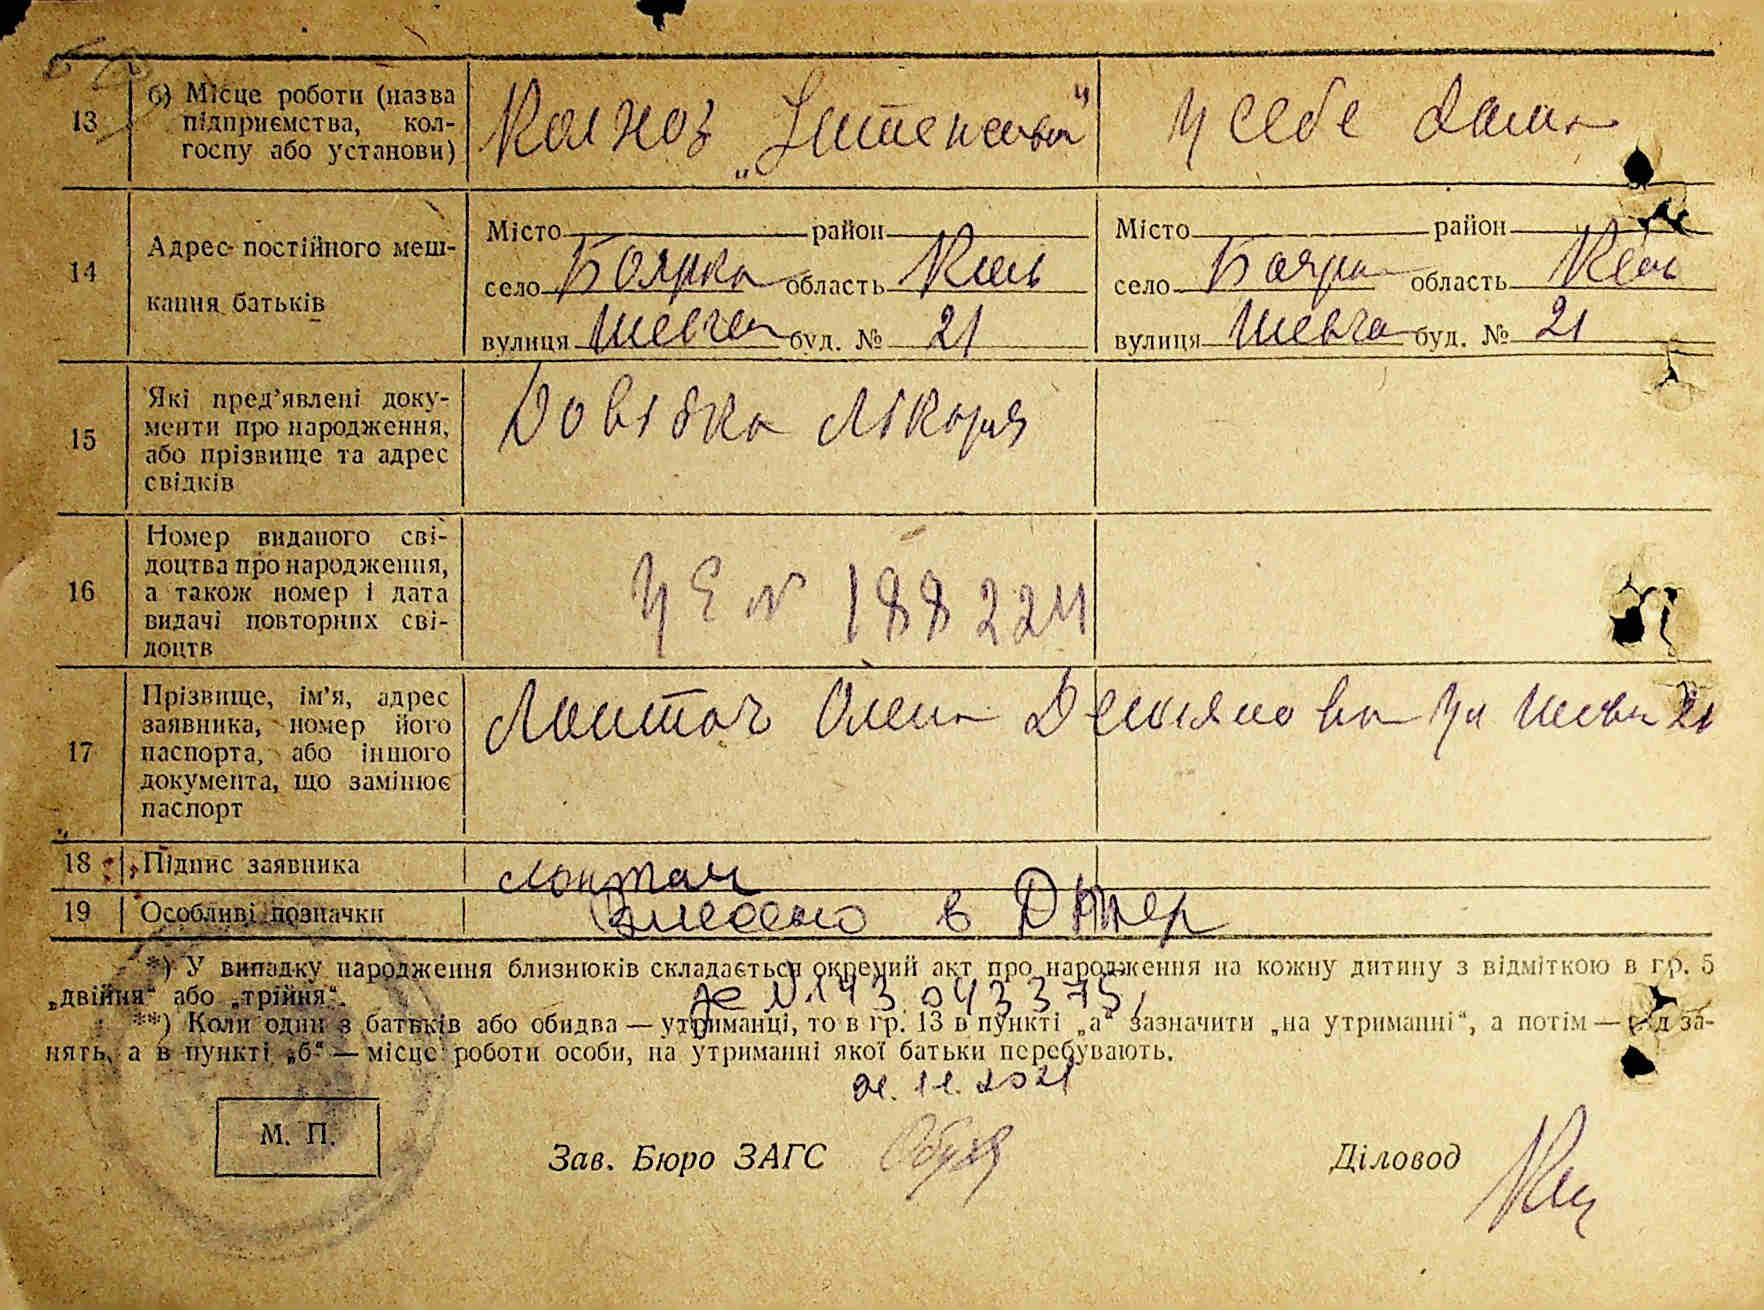 13
б) Місце роботи (назва
підприємства, кол-
госпу або установи)
Колхоз
у себе дома
14
Адрес постійного меш-
кання батьків
Місто район
село Боярка область Киів
вулиця Шевчен буд. № 21
Місто район
село Боярк область Київ
вулиця Шевче буд. № 21
15
Які пред’явлені доку-
менти про народження,
або прізвище та адрес
свідків
Довідка лікаря
16
Номер виданого сві-
доцтва про народження,
а також номер і дата
видачі повторних сві-
доцтв
УЕ № 188224
17
Прізвище, ім’я, адрес
заявника, номер його
паспорта, або іншого
документа, що замінює
паспорт
Лоштач Олена Демянова Ул Шевч 21
18 Підпис заявника
19 Особливі позначки
Внесено в
*) У випадку народження близнюків складається окремий акт про народження на кожну дитину з відміткою в гр. 5
„двійня“ або „трійня“.
**) Коли один з батьків або обидва — утриманці, то в гр. 13 в пункті „а“ зазначити „на утриманні“, а потім — рід за-
нять, а в пункті „б“ — місце роботи особи, на утриманні якої батьки перебувають.
М. П.
Зав. Бюро ЗАГС
Діловод